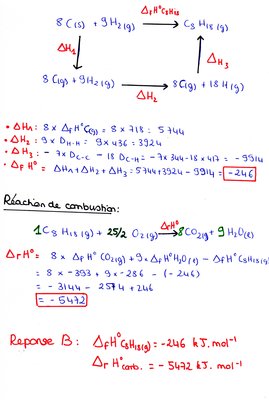 ΔfH°C8H18
8C(s) + 9H2(g) → C8H18(g)
ΔH1
ΔH3
8C(g) + 9H2(g) → 8C(g) + 18H(g)
ΔH2
• ΔH1 = 8 × ΔfH°C(g) = 8 × 718 = 5744
• ΔH2 = 9 × DH-H = 9 × 436 = 3924
• ΔH3 = - 7× DC-C - 18 DC-H = -7×344-18×417 = -9914
• ΔfH° = ΔH1+ΔH2+ΔH3 = 5744+3924-9914 = -246
Réaction de combustion:
ΔrH°
1C8H18(g) + 25/2 O2(g) → 8CO2(g) + 9H2O(l)
ΔrH° = 8 × ΔfH°CO2(g) + 9×ΔfH°H2O(l) - ΔfH°C8H18(g)
= 8 × -393 + 9 × -286 - (-246)
= - 3144 - 2574 + 246
= - 5472
Reponse B: ΔfH°C8H18(g) = -246 kJ.mol-1
ΔrH°comb. = - 5472 kJ.mol-1